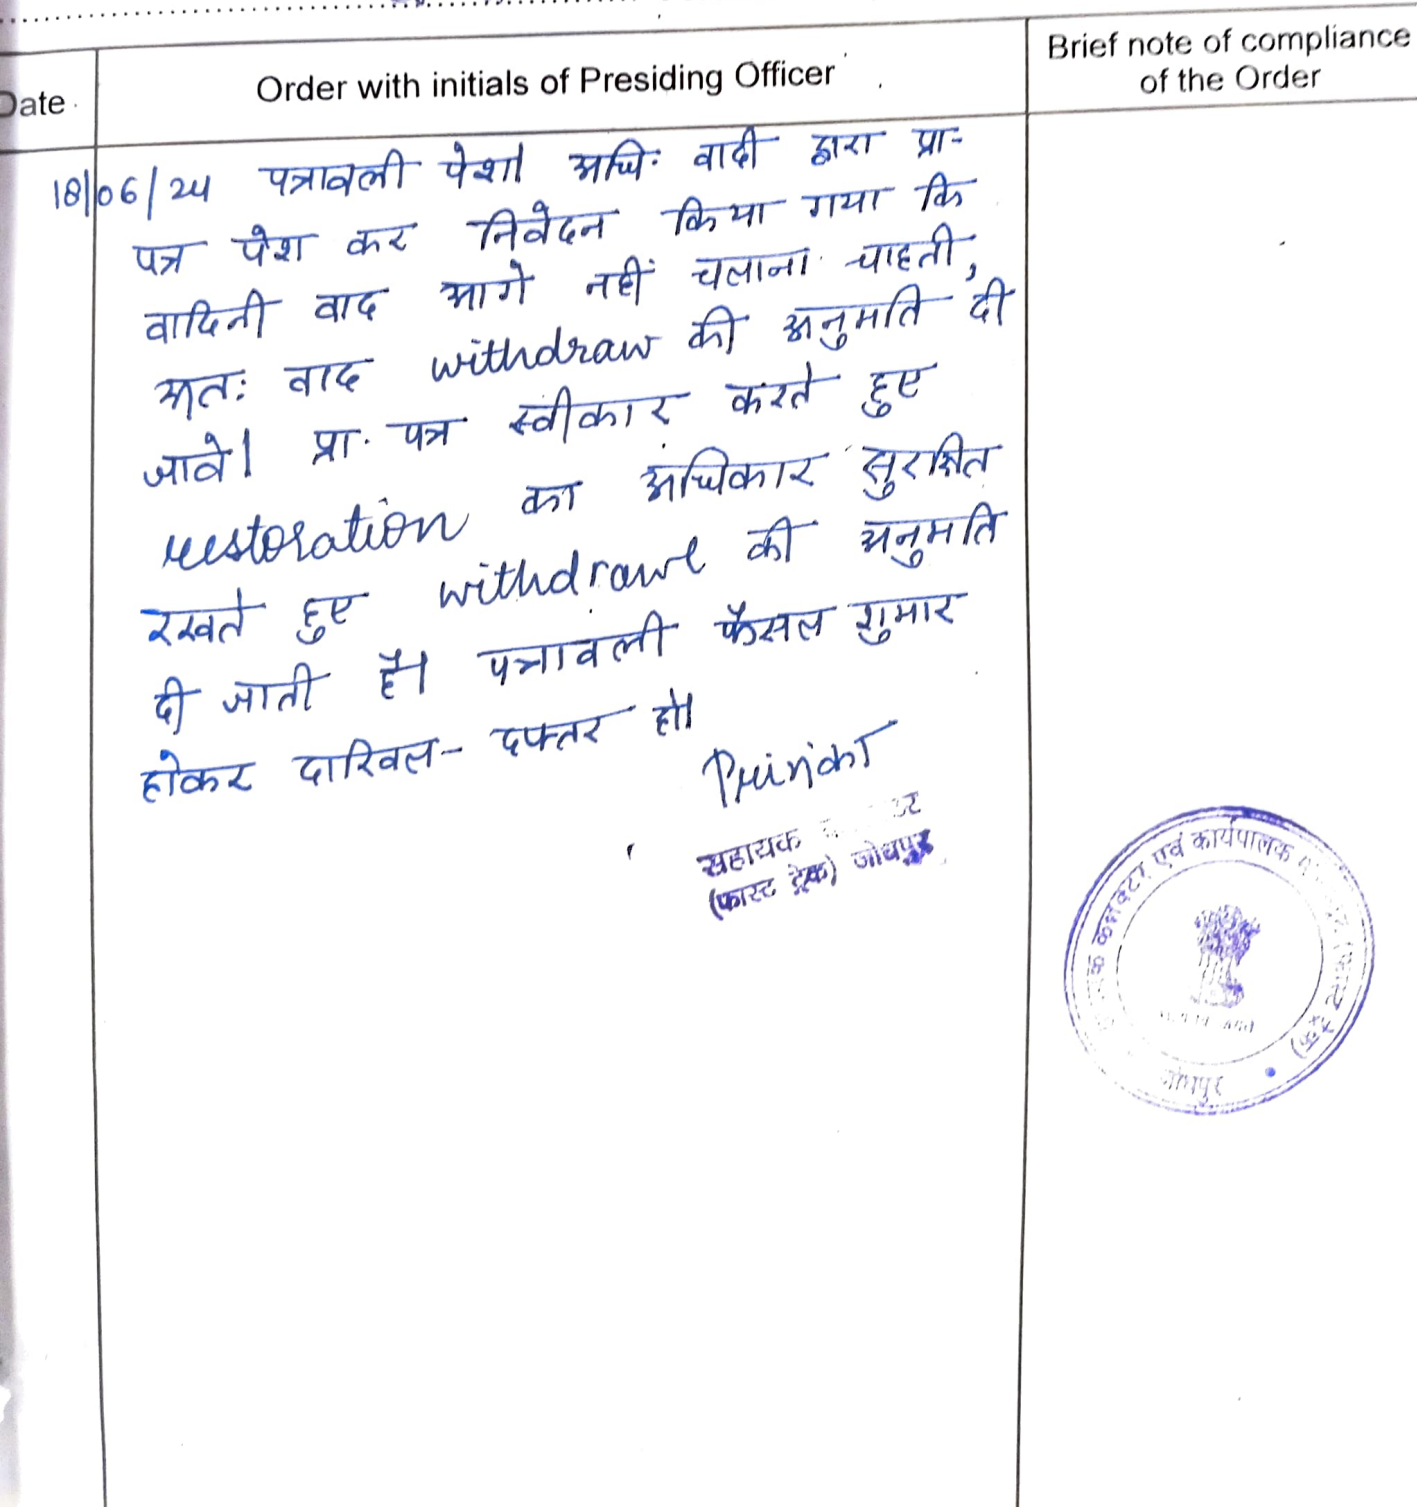 Date
Order with initials of Presiding Officer
Brief note of compliance
of the Order
18/06/24 पत्रावली पेश। अधि. वादी द्वारा प्रा-
पत्र पेश कर निवेदन किया गया कि
वादिनी वाद आगे नहीं चलाना चाहती,
अतः वाद withdraw की अनुमति दी
जावे। प्रा. पत्र स्वीकार करते हुए
restoration का अधिकार सुरक्षित
रखते हुए withdrawl की अनुमति
दी जाती है। पत्रावली फैसल शुमार
होकर दाखिल- दफ्तर हो।
सहायक
(फास्ट ट्रेक) जोधपुर
कलक्टर एवं कार्यपालक
ट्रेक)
जोधपुर